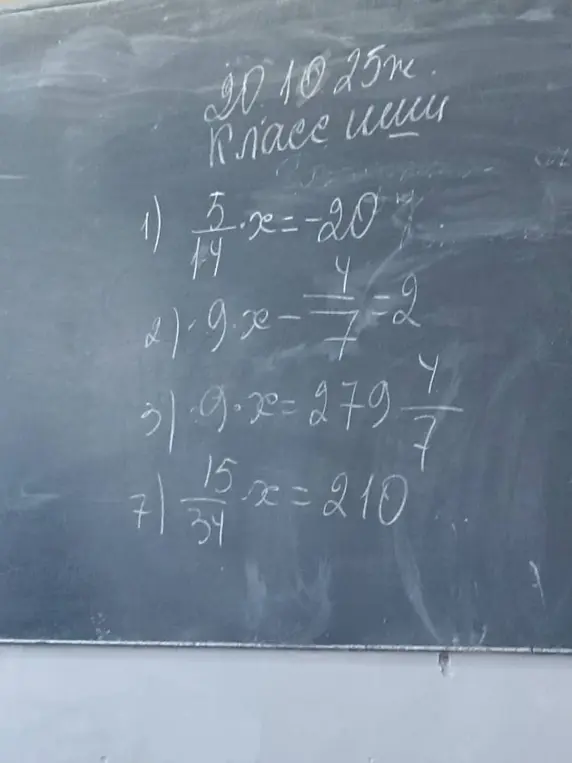 20 10 25ж.
Класс иши
1) 5/14 · x = -20
2) · 9 · x - 4/7 = 2
3) · 9 · x = 279 4/7
7) 15/34 · x = 210